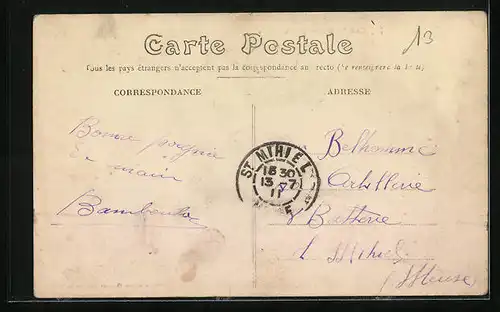 Carte Postale
13
Tous les pays étrangers n'acceptent pas la correspondance au recto (Se renseigner à la Poste)
CORRESPONDANCE
ADRESSE
Bonne poignée
de main
ST MIHIEL
18 30
13 - 7
11
MEUSE
Belhomme
Artillerie
Batterie
St Mihiel
(Meuse)